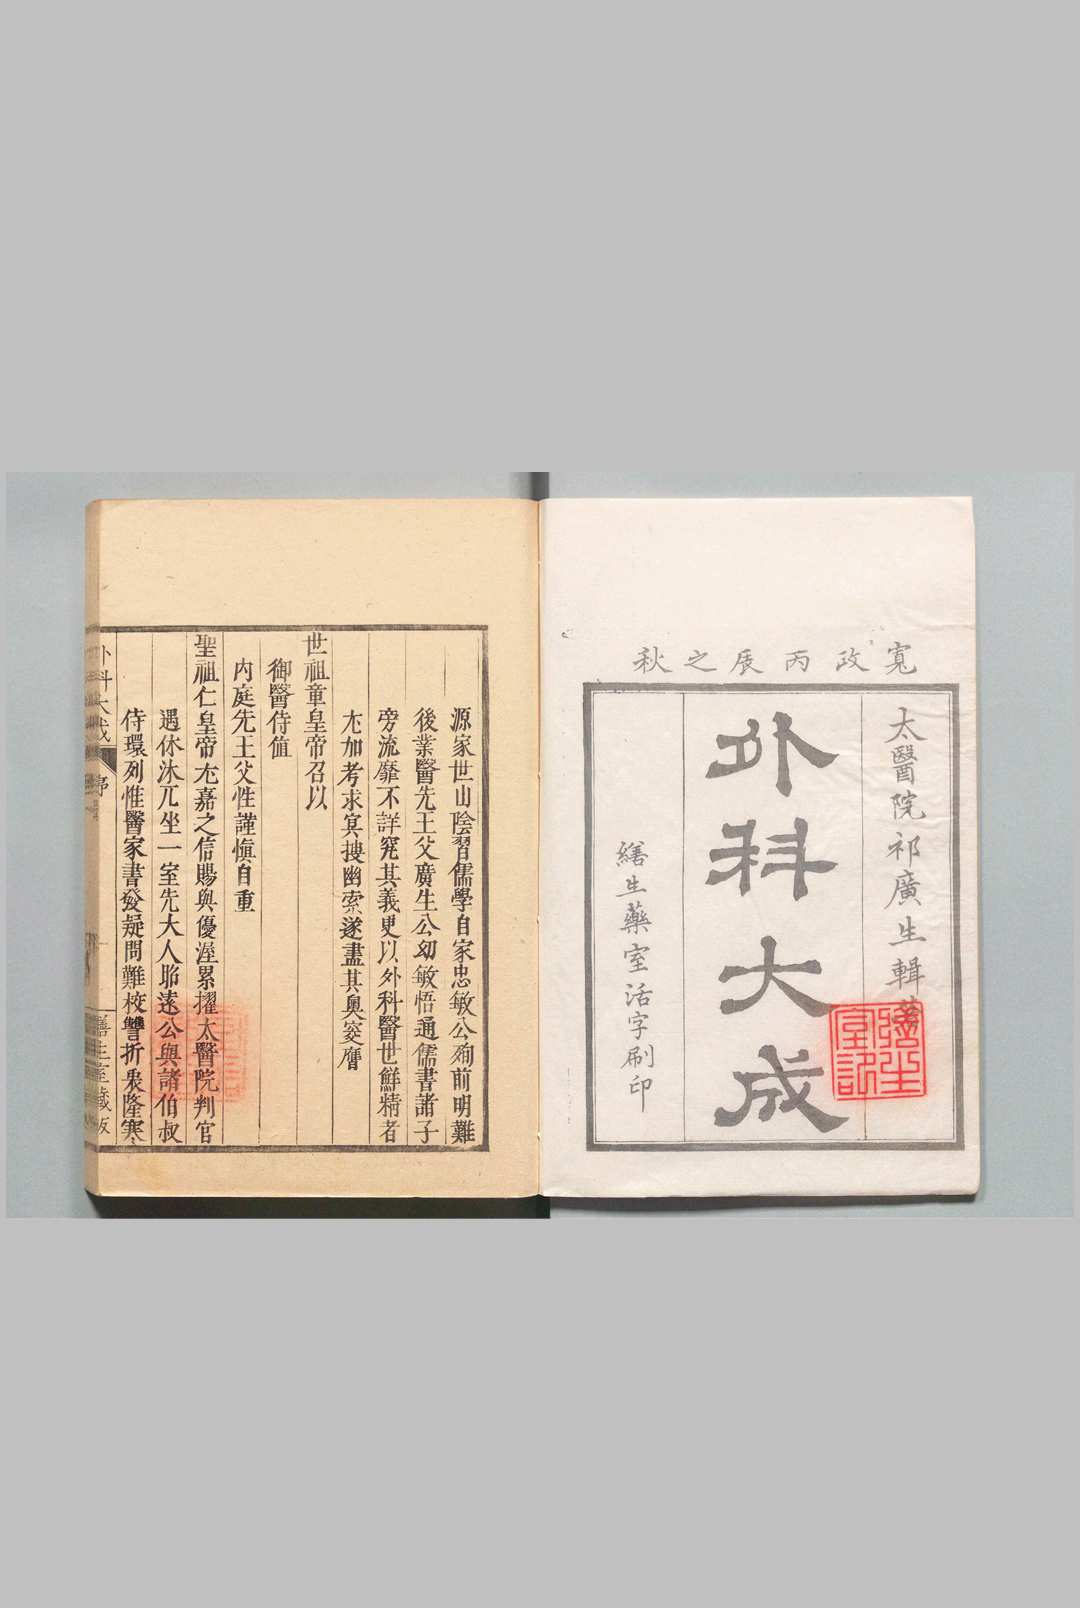 寬政丙辰之秋
太醫院祁廣生輯著
外科大成
繕生藥室活字刷印
繕生室記
源家世山陰習儒學自家忠敏公殉前明難
後業醫先王父廣生公幼敏悟通儒書諸子
旁流靡不詳究其義更以外科醫世鮮精者
尤加考求冥搜幽索遂盡其奧窔膺
世祖章皇帝召以
御醫侍值
內庭先王父性謹慎自重
聖祖仁皇帝尤嘉之信賜與優渥累擢太醫院判官
遇休沐兀坐一室先大人昭遠公與諸伯叔
侍環列惟醫家書發疑問難校讐折衷隆寒
外科大成 序
繕生室藏板